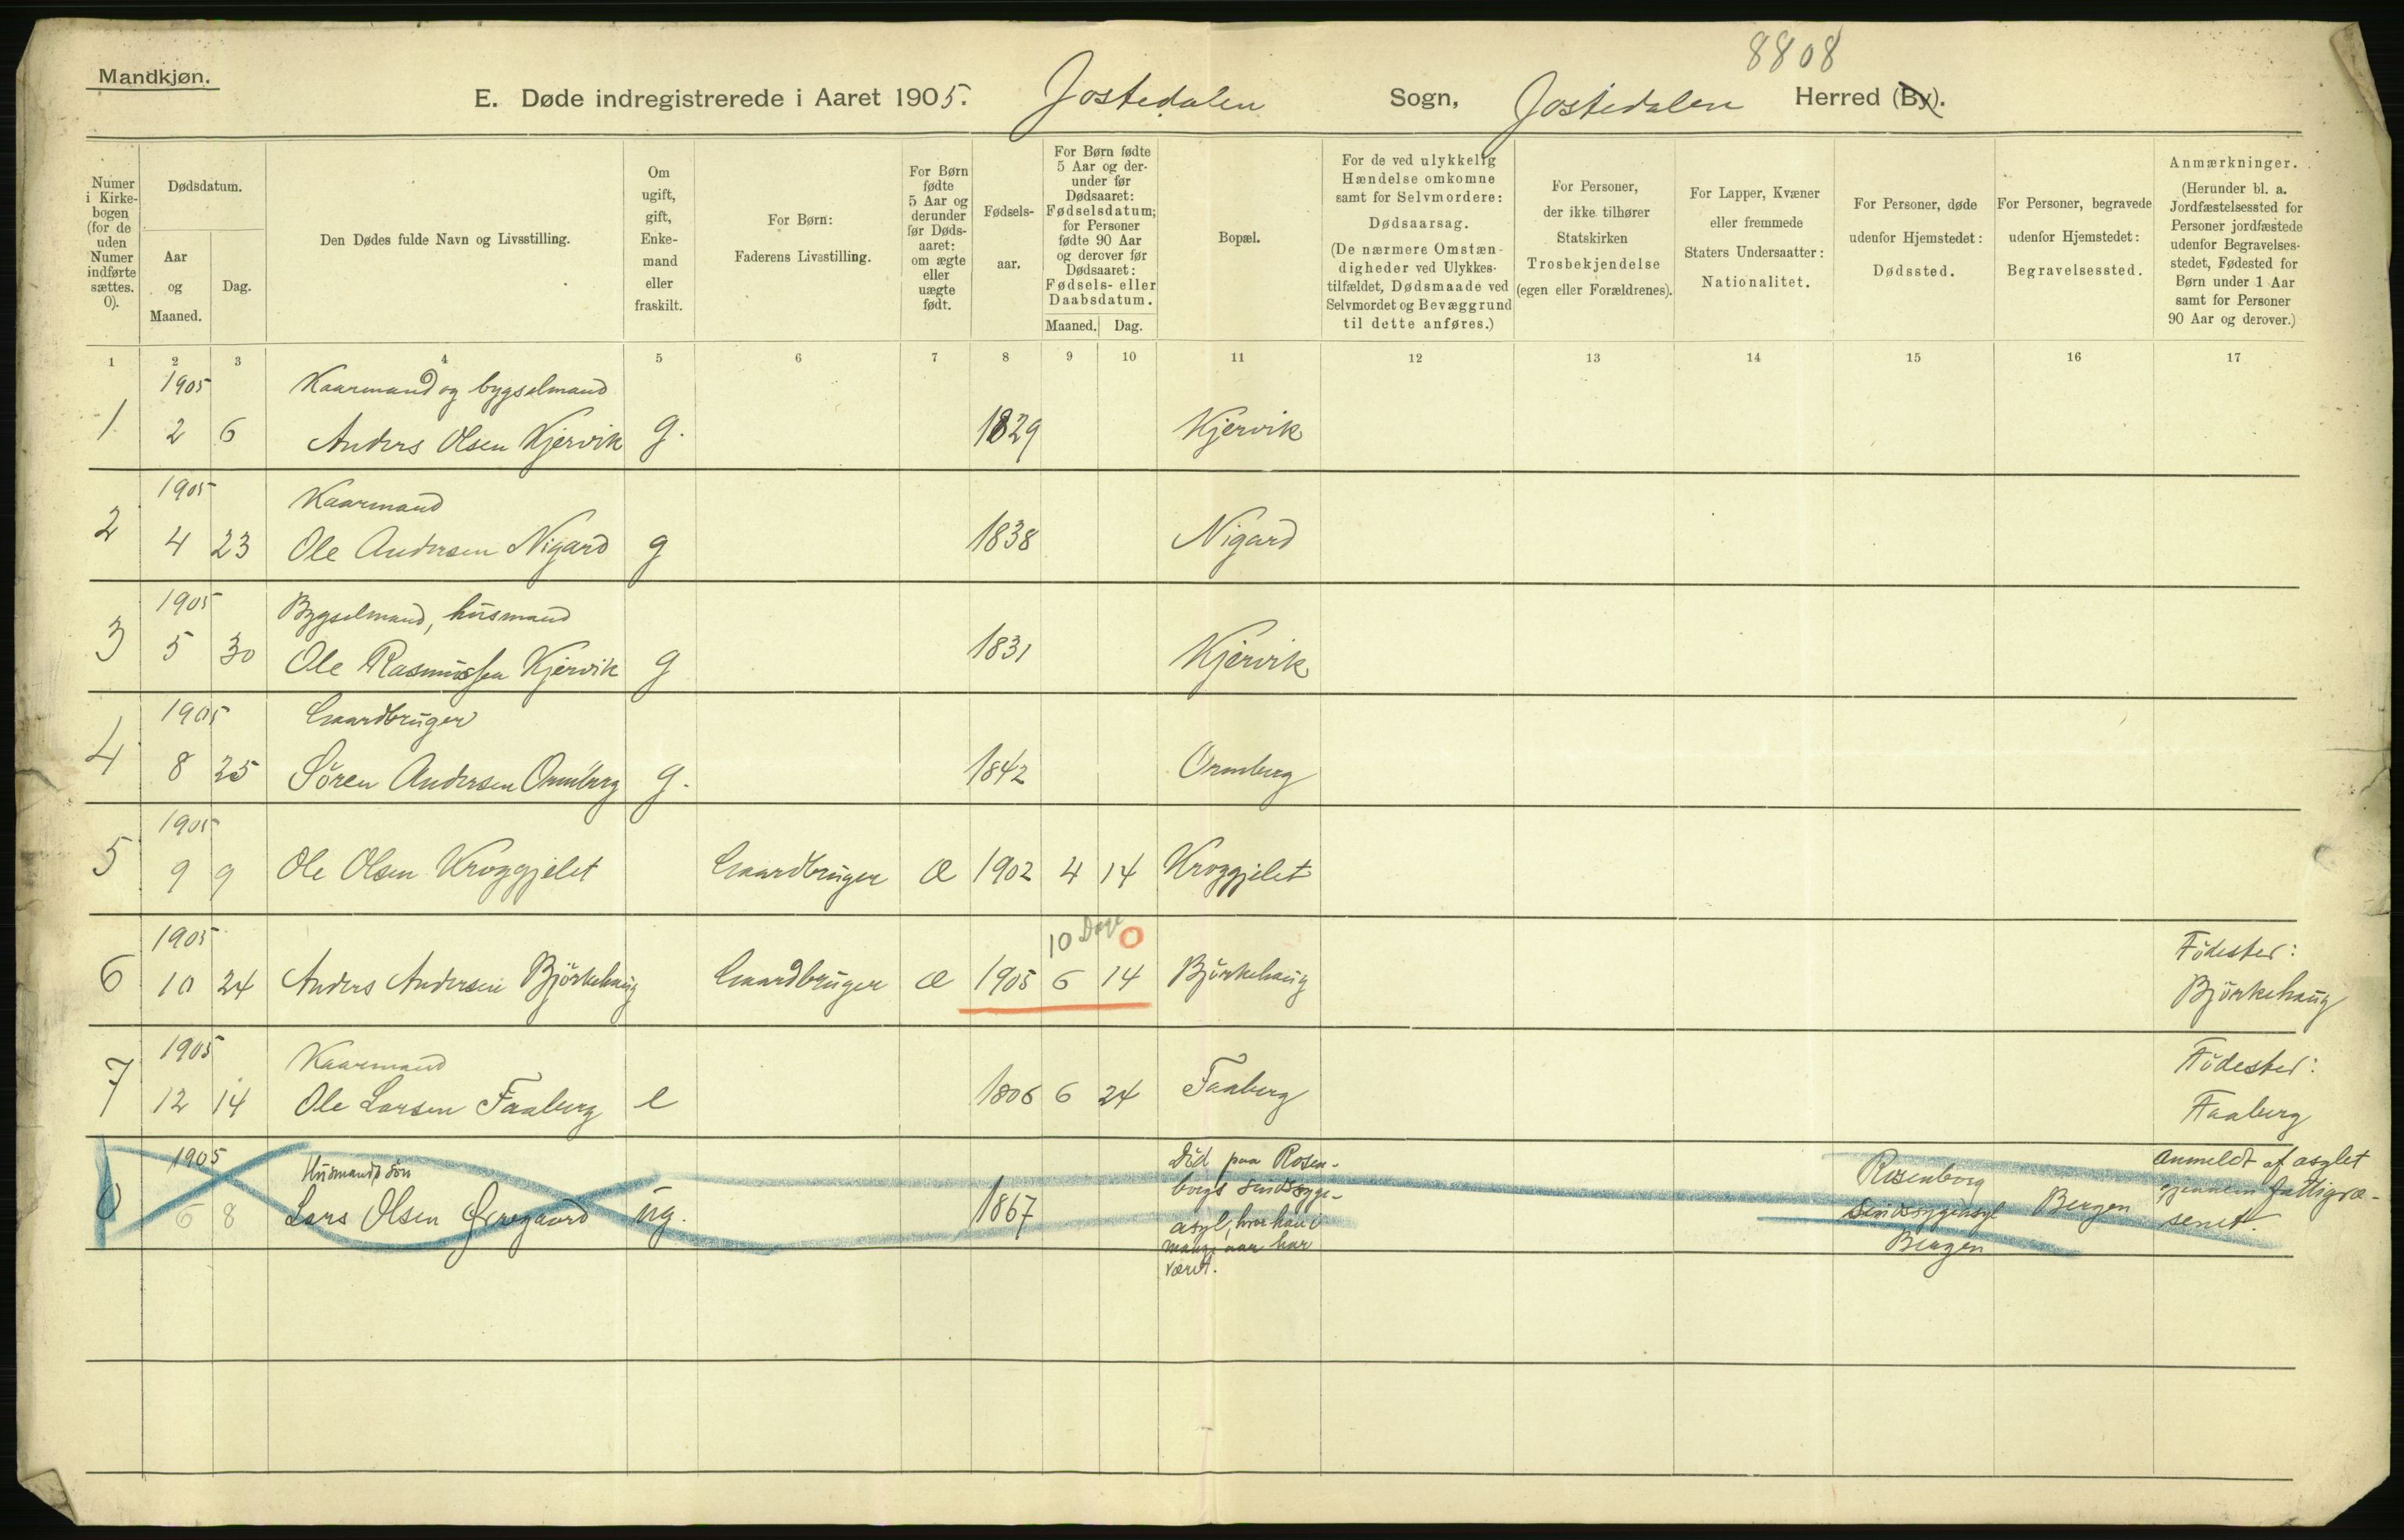 8808
Mandkjøn.
E. Døde indregistrerede i Aaret 1905. Jostedalen Sogn, Jostedalen Herred (By).
Numer i Kirke-bogen (for de uden Numer indførte sættes. 0).
Dødsdatum.
Aar og Maaned.
Dag.
Den Dødes fulde Navn og Livsstilling.
Om ugift, gift, Enke-mand eller fraskilt.
For Børn:
Faderens Livsstilling.
For Børn fødte 5 Aar og derunder før Døds-aaret: om ægte eller uægte født.
Fødsels-aar.
For Børn fødte 5 Aar og der-under før Dødsaaret: Fødselsdatum; for Personer fødte 90 Aar og derover før Dødsaaret: Fødsels- eller Daabsdatum.
Maaned. Dag.
Bopæl.
For de ved ulykkelig Hændelse omkomne samt for Selvmordere:
Dødsaarsag.
(De nærmere Omstæn-digheder ved Ulykkes-tilfældet, Dødsmaade ved Selvmordet og Bevæggrund til dette anføres.)
For Personer, der ikke tilhører Statskirken
Trosbekjendelse
(egen eller Forældrenes).
For Lapper, Kvæner eller fremmede Staters Undersaatter:
Nationalitet.
For Personer, døde udenfor Hjemstedet:
Dødssted.
For Personer, begravede udenfor Hjemstedet:
Begravelsessted.
Anmærkninger.
(Herunder bl. a. Jordfæstelsessted for Personer jordfæstede udenfor Begravelses-stedet, Fødested for Børn under 1 Aar samt for Personer 90 Aar og derover.)
1 2 3 4 5 6 7 8 9 10 11 12 13 14 15 16 17
1905 Kaarmand og bygselmand
1 2 6 Anders Olsen Kjervik g. 1829 Kjervik
1905 Kaarmand
2 4 23 Ole Andersen Nigard g 1838 Nigard
1905 Bygselmand, husmand
3 5 30 Ole Rasmussen Kjervik g 1831 Kjervik
1905 Gaardbruger
4 8 25 Sören Andersen Ormberg g. 1842 Ormberg
1905
5 9 9 Ole Olsen Kroggjelet Gaardbruger æ 1902 4 14 Kroggjelet
1905 10 Dage 0 Födested:
6 10 24 Anders Andersen Björkehaug Gaardbruger æ 1905 6 14 Björkehaug Björkehaug
1905 Kaarmand Födested:
7 12 14 Ole Larsen Faaberg e 1806 6 24 Faaberg Faaberg
1905 Husmands sön
0 6 8 Lars Olsen ug. 1867
Död paa Rosen-
borgs sindssyge-
asyl, hvor han i
mange aar har
været.
Rosenborg
Sindssygeasyl
Bergen
Bergen
Anmeldt af asylet
gjennem fattigvæ-
senet.